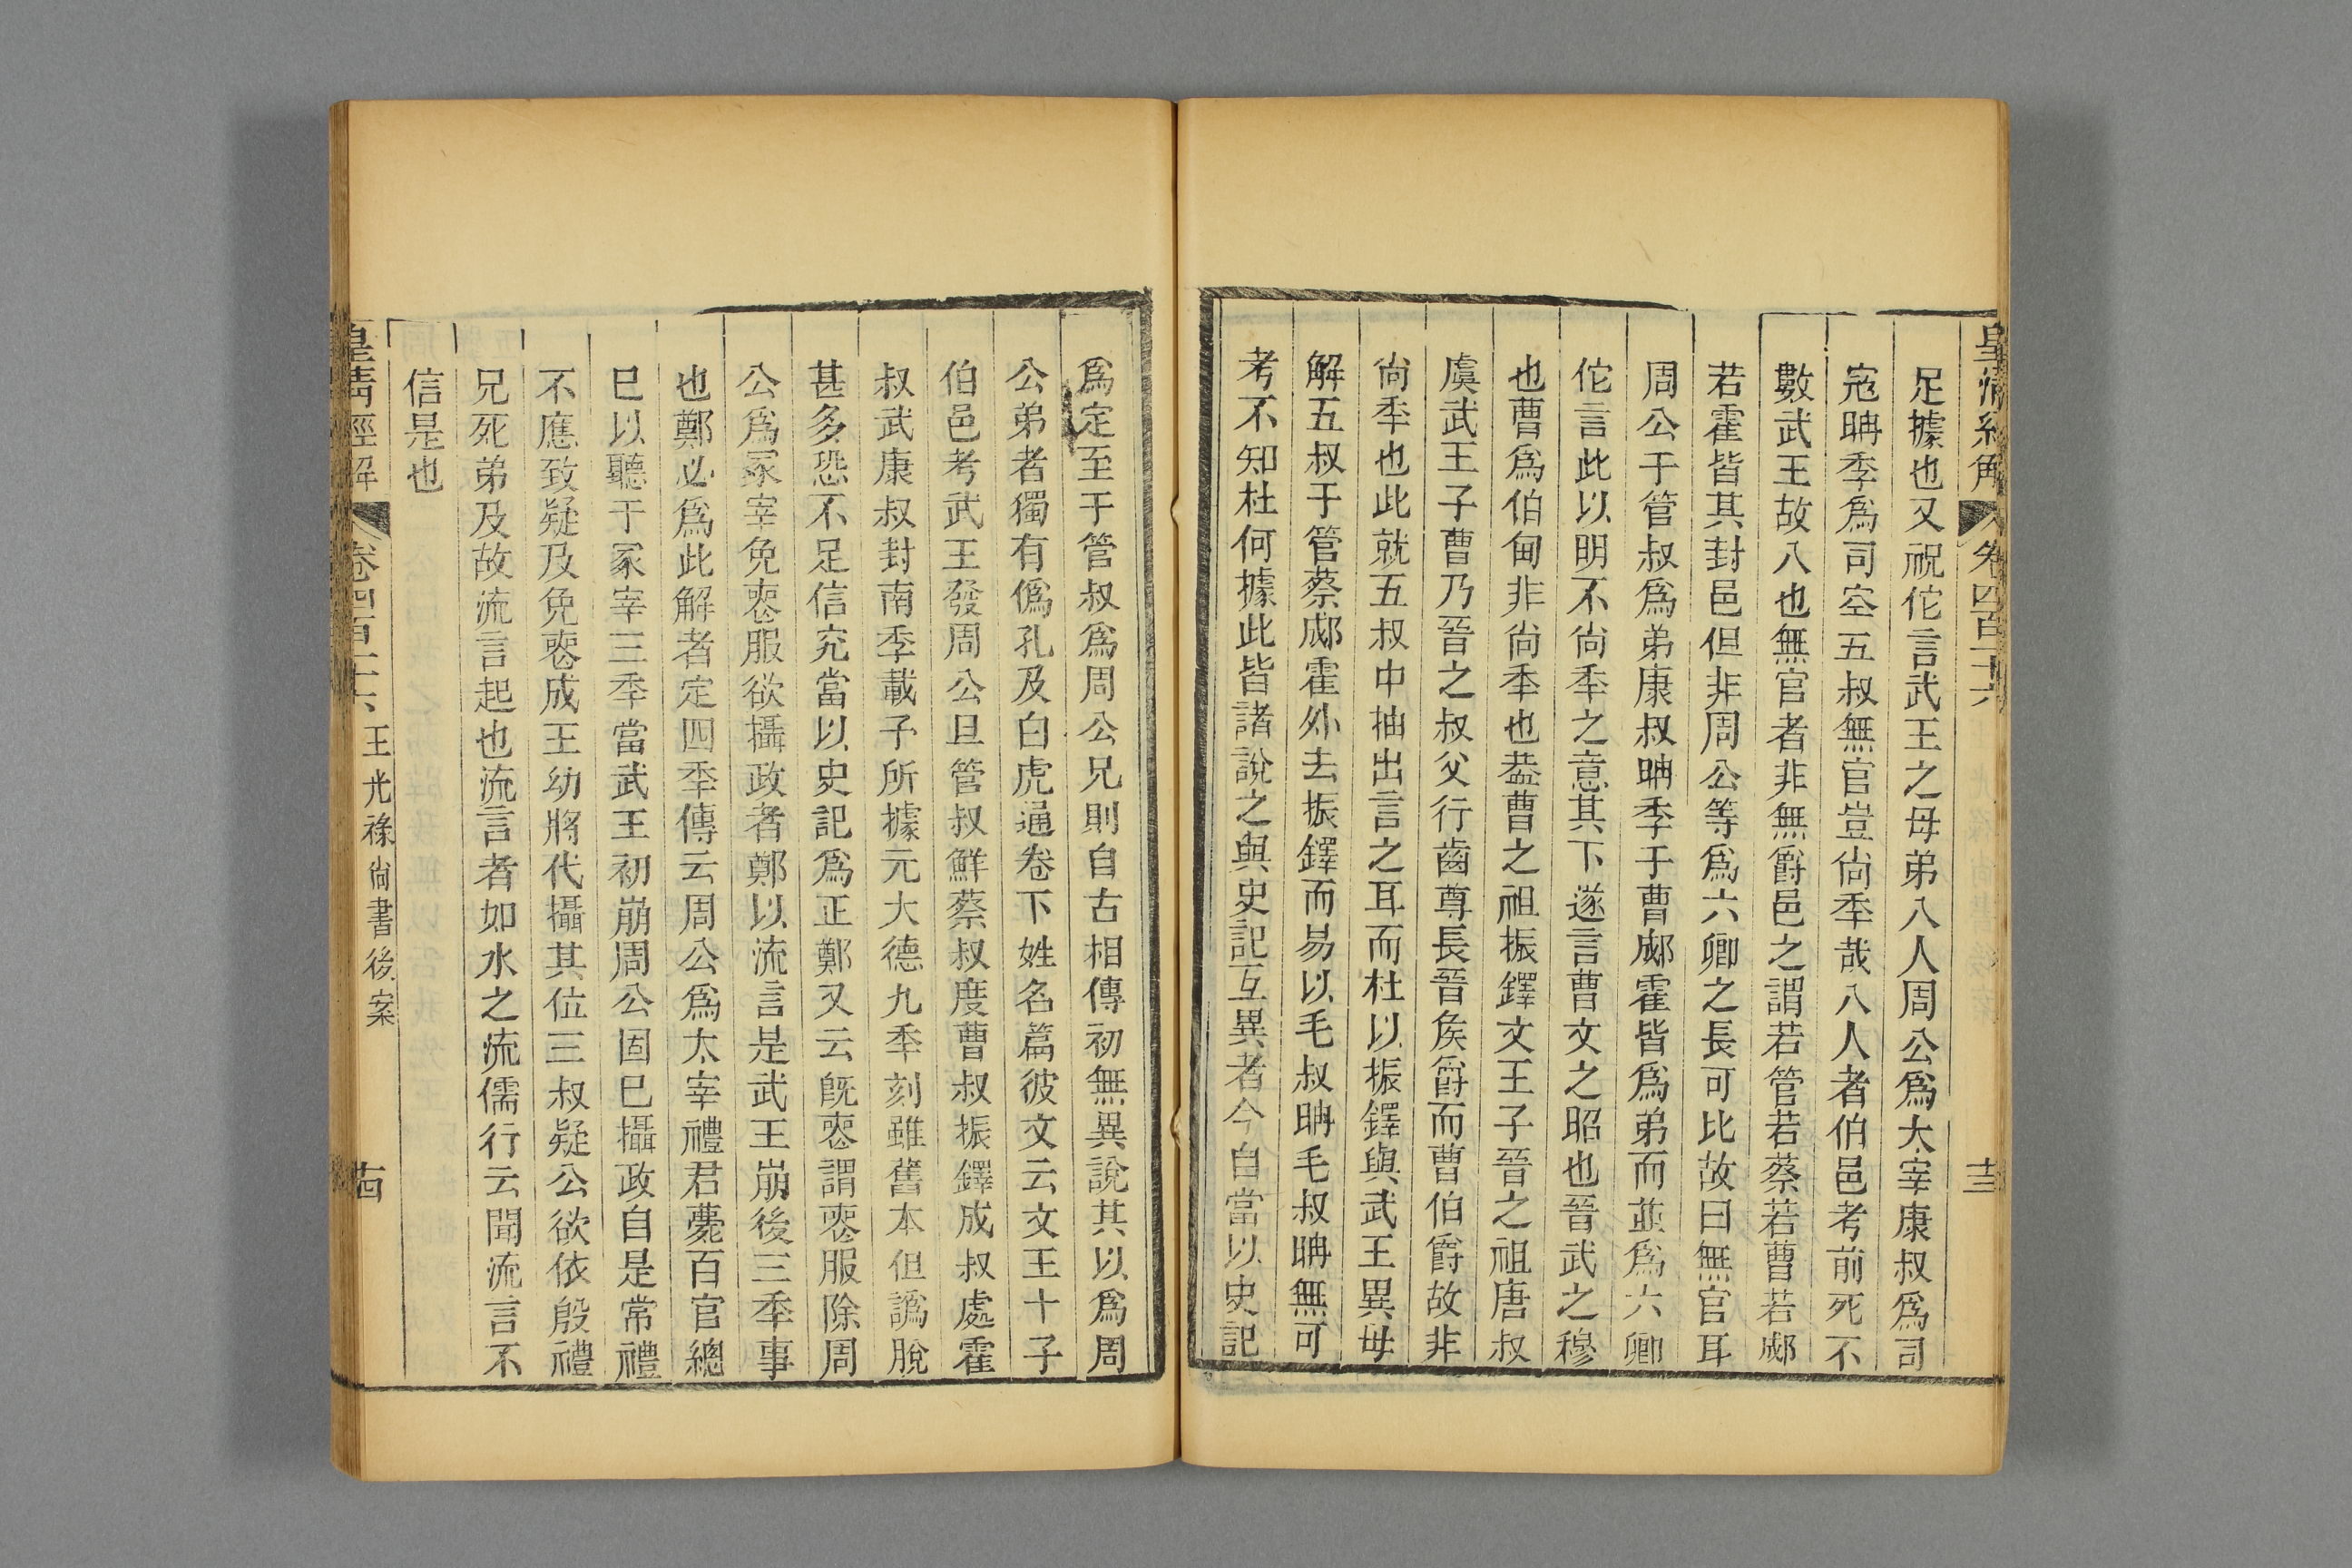 皇清經解 卷四百二十六 十三
足據也又祝佗言武王之母弟八人周公爲太宰康叔爲司
寇聃季爲司空五叔無官豈尙秊哉八人者伯邑考前死不
數武王故八也無官者非無爵邑之謂若管若蔡若曹若郕
若霍皆其封邑但非周公等爲六卿之長可比故曰無官耳
周公于管叔爲弟康叔聃季于曹郕霍皆爲弟而並爲六卿
佗言此以明不尙秊之意其下遂言曹文之昭也晉武之穆
也曹爲伯甸非尙秊也葢曹之祖振鐸文王子晉之祖唐叔
虞武王子曹乃晉之叔父行齒尊長晉矦爵而曹伯爵故非
尙秊也此就五叔中抽出言之耳而杜以振鐸與武王異母
解五叔于管蔡郕霍外去振鐸而易以毛叔聃毛叔聃無可
考不知杜何據此皆諸說之與史記互異者今自當以史記
爲定至于管叔爲周公兄則自古相傳初無異說其以爲周
公弟者獨有僞孔及白虎通卷下姓名篇彼文云文王十子
伯邑考武王發周公旦管叔鮮蔡叔度曹叔振鐸成叔處霍
叔武康叔封南季載予所據元大德九秊刻雖舊本但譌脫
甚多恐不足信究當以史記爲正鄭又云旣䘮謂䘮服除周
公爲冢宰免䘮服欲攝政者鄭以流言是武王崩後三秊事
也鄭必爲此解者定四秊傳云周公爲太宰禮君薨百官總
巳以聽于冢宰三秊當武王初崩周公固巳攝政自是常禮
不應致疑及免䘮成王幼將代攝其位三叔疑公欲依殷禮
兄死弟及故流言起也流言者如水之流儒行云聞流言不
信是也
皇清經解 卷四百二十六 王光祿尙書後案 十四